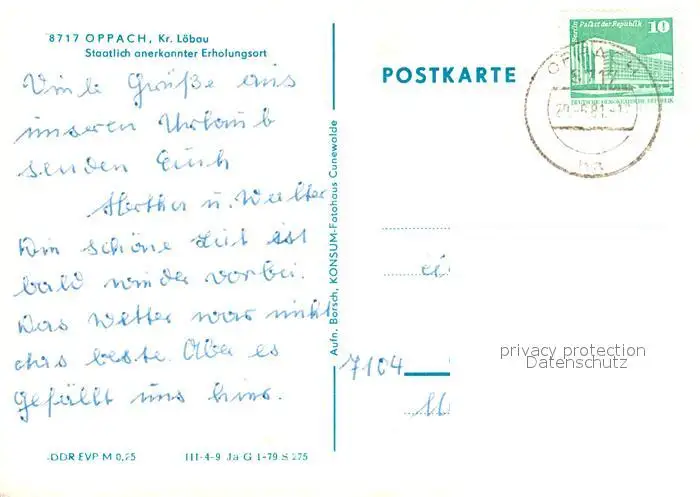 8717 OPPACH, Kr. Löbau
Staatlich anerkannter Erholungsort
Viele Grüße aus
unseren Urlaub
senden Euch
Herther u. Walter
Die schöne Zeit ist
bald wieder vorbei.
Das Wetter war nicht
das beste. Aber es
gefällt uns hier.
-DDR EVP M 0,25
III-4-9 Ja G 1-79 S 275
Aufn. Borsch, KONSUM-Fotohaus Cunewalde
POSTKARTE
Berlin Palast der Republik
10
DEUTSCHE DEMOKRATISCHE REPUBLIK
8717
7104
privacy protection
Datenschutz